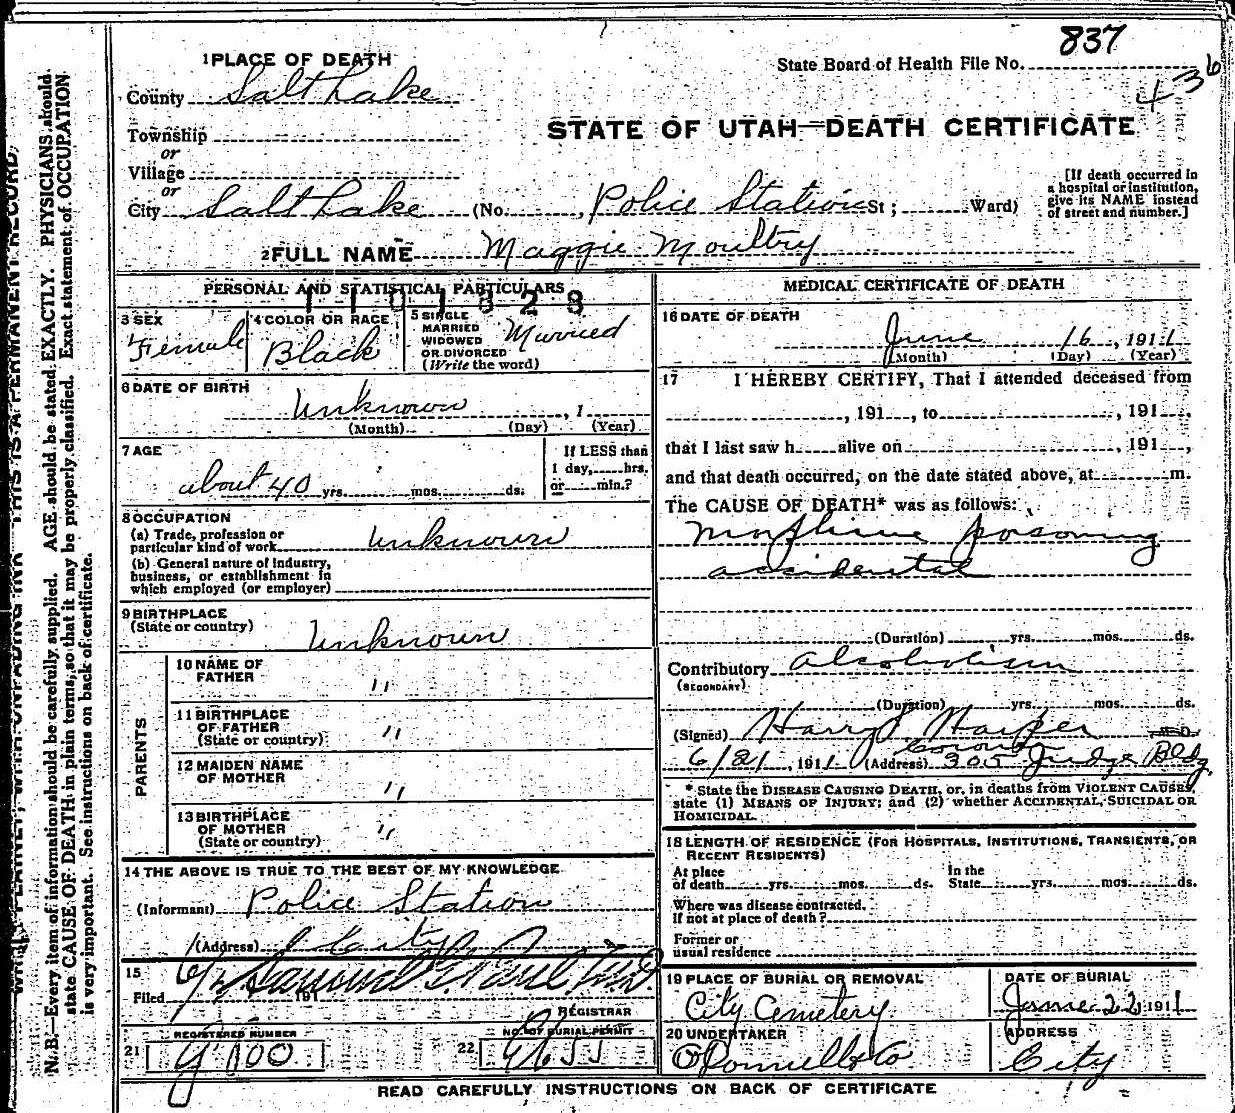 837
State Board of Health File No.
436
1 PLACE OF DEATH
County Salt Lake
STATE OF UTAH—DEATH CERTIFICATE
Township
or
Village
or
City Salt Lake (No. , Police Station St; Ward)
[If death occurred in a hospital or institution, give its NAME instead of street and number.]
2 FULL NAME Maggie Moultry
PERSONAL AND STATISTICAL PARTICULARS
3 SEX
Female
4 COLOR OR RACE
Black
5 SINGLE MARRIED WIDOWED OR DIVORCED (Write the word)
Married
6 DATE OF BIRTH
Unknown , 1
(Month) (Day) (Year)
7 AGE
about 40 yrs. mos. ds.
If LESS than 1 day, hrs. or min.?
8 OCCUPATION
(a) Trade, profession or particular kind of work Unknown
(b) General nature of industry, business, or establishment in which employed (or employer)
9 BIRTHPLACE
(State or country) Unknown
PARENTS
10 NAME OF FATHER "
11 BIRTHPLACE OF FATHER (State or country) "
12 MAIDEN NAME OF MOTHER "
13 BIRTHPLACE OF MOTHER (State or country) "
14 THE ABOVE IS TRUE TO THE BEST OF MY KNOWLEDGE
(Informant) Police Station
(Address) City
15
Filed 191
REGISTRAR
21 REGISTERED NUMBER
22 NO. OF BURIAL PERMIT
MEDICAL CERTIFICATE OF DEATH
16 DATE OF DEATH
June 16, 1911
(Month) (Day) (Year)
17 I HEREBY CERTIFY, That I attended deceased from
, 191 , to , 191 ,
that I last saw h alive on , 191 ,
and that death occurred, on the date stated above, at m.
The CAUSE OF DEATH* was as follows:
Morphine poisoning
accidental
(Duration) yrs. mos. ds.
Contributory Alcoholism
(SECONDARY)
(Duration) yrs. mos. ds.
(Signed) Harry S Harper M.D.
Coroner
6/21, 1911 (Address) 305 Judge Bldg.
* State the DISEASE CAUSING DEATH, or, in deaths from VIOLENT CAUSES, state (1) MEANS OF INJURY; and (2) whether ACCIDENTAL, SUICIDAL OR HOMICIDAL.
18 LENGTH OF RESIDENCE (FOR HOSPITALS, INSTITUTIONS, TRANSIENTS, OR RECENT RESIDENTS)
At place of death yrs. mos. ds. In the State yrs. mos. ds.
Where was disease contracted, If not at place of death?
Former or usual residence
19 PLACE OF BURIAL OR REMOVAL
City Cemetery
DATE OF BURIAL
June 22 1911
20 UNDERTAKER
O'Donnell & Co
ADDRESS
City
READ CAREFULLY INSTRUCTIONS ON BACK OF CERTIFICATE
THIS IS A PERMANENT RECORD.
N. B.—Every item of information should be carefully supplied. AGE should be stated EXACTLY. PHYSICIANS should
state CAUSE OF DEATH in plain terms, so that it may be properly classified. Exact statement of OCCUPATION
is very important. See instructions on back of certificate.